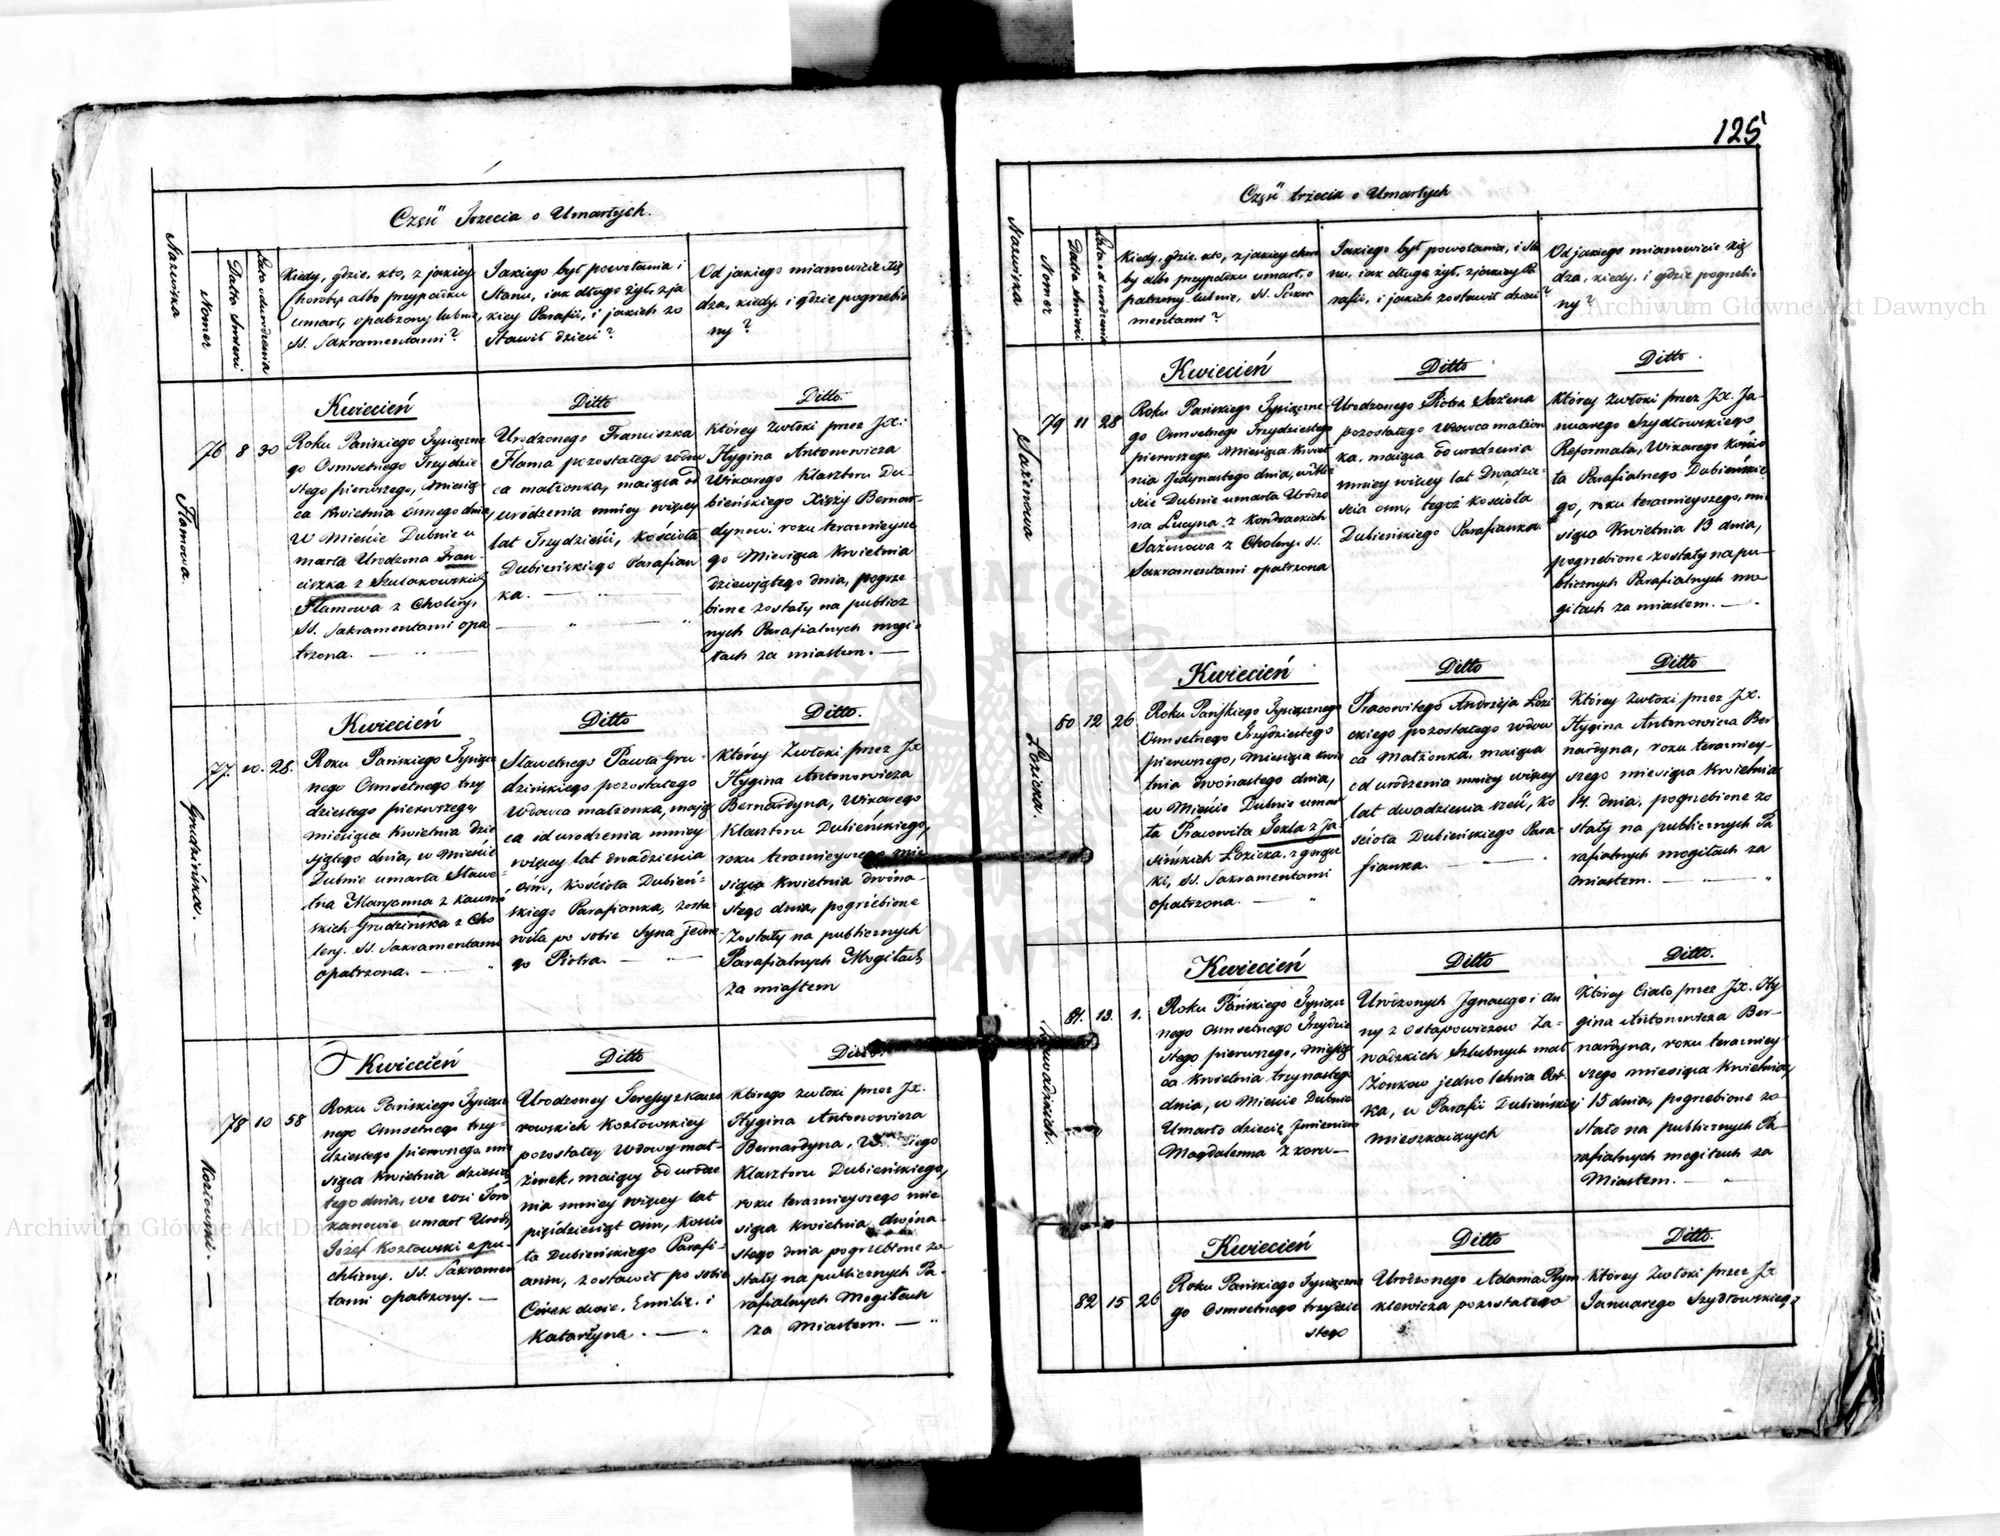 125
Część Trzecia o Umarłych.
Nazwiska
Nomer
Datta śmierci
Lata od urodzenia
Kiedy, gdzie, kto, z jakiey
choroby albo przypadku
umarł, opatrzony lub nie,
SS. Sakramentami?
Jakiego był powołania i
Stanu, iak długo żył, z ja
kiey Parafii, i jakich zo
stawił dzieci?
Od jakiego mianowicie Xię
dza, kiedy, i gdzie pogrzebio
ny?
Flamowa.
76
8
30
Kwiecień
Roku Pańskiego Tysiączne
go Osmsetnego Trzydzie
stego pierwszego, Miesią
ca Kwietnia osmego dnia
w Mieście Dubnie u
marła Urodzona Fran-
ciszka z Szulakowskich
Flamowa z Cholery,
SS. Sakramentami opa
trzona.
Ditto
Urodzonego Franciszka
Flama pozostałego wdow
ca małżonka, maiąca od
urodzenia mniey więcey
lat Trzydzieści, Kościoła
Dubieńskiego Parafian
ka.
Ditto.
Którey Zwłoki przez Jx:
Hygina Antonowicza
Wikarego Klasztoru Du-
bieńskiego Xięży Bernar-
dynow. roku teraznieysze
go Miesiąca Kwietnia
dziewiątego dnia, pogrze
bione zostały na publicz
nych Parafialnych mogi-
łach za miastem.
Grudzińska.
77.
10.
28.
Kwiecień
Roku Pańskiego Tysiącz
nego Osmsetnego trzy
dziestego pierwszego,
miesiąca Kwietnia dzie
siątego dnia, w Mieście
Dubnie umarła Sławe-
tna Maryanna z
skich Grudzińska z Cho
lery. SS. Sakramentami
opatrzona.
Ditto
Sławetnego Pawła Gru-
dzińskiego pozostałego
Wdowca małżonka, mają
ca od urodzenia mniey
więcey lat dwadzieścia
ośm, Kościoła Dubień-
skiego Parafianka, zosta-
wiła po sobie Syna jedne-
go Piotra.
Ditto.
Którey Zwłoki przez Jx
Hygina Antonowicza
Bernardyna, Wikarego
Klasztoru Dubieńskiego,
roku teraznieyszego mie
siąca Kwietnia dwóna-
stego dnia, pogrzebione
Zostały na publicznych
Parafialnych Mogiłach
za miastem
Kozłowski.
78
10
58
Kwiecień
Roku Pańskiego Tysiącz
nego Osmsetnego trzy-
dziestego pierwszego, mie
siąca Kwietnia dziesią
tego dnia, we wsi
umarł Urodz
Józef Kozłowski z pu-
chliny. SS. Sakramen
tami opatrzony.
Ditto
Urodzoney Teressy z
rowskich Kozłowskiey
pozostałey Wdowy mał-
żonek, maiący od urodze
nia mniey więcey lat
pięćdziesiąt ośm, Kościo
ła Dubieńskiego Parafi-
anin, zostawił po sobie
Córek dwie, Emilię i
Katarżyna.
Ditto
Którego zwłoki przez Jx.
Hygina Antonowicza
Bernardyna,
Klasztoru Dubieńskiego,
roku teraznieyszego mie
siąca Kwietnia, dwóna-
stego dnia pogrzebione zo
stały na publicznych Pa-
rafialnych Mogiłach
za Miastem.
Część trzecia o Umarłych
Nazwiska
Nomer
Datta śmierci
Lata od urodzenia
Kiedy, gdzie, kto, z jakiey choro
by albo przypadku umarł, o
patrzony lub nie, SS. Sakra
mentami?
Jakiego był powołania, i Sta
nu, iak długo żył, z jakiey Pa
rafii, i jakich zostawił dzieci?
Od jakiego mianowicie Xię
dza, kiedy, i gdzie pogrzebio
ny?
Sażenowa
79
11
28
Kwiecień
Roku Pańskiego Tysiączne-
go Osmsetnego Trzydziestego
pierwszego, Miesiąca Kwiet
nia Jedynastego dnia, w Mie
ście Dubnie umarła Urodzo
na Lucyna z Kondrackich
Sażenowa z Cholery. SS.
Sakramentami opatrzona
Ditto
Urodzonego Piotra Sażena
pozostałego Wdowca małżon
ka, maiąca od urodzenia
mniey więcey lat Dwadzie-
ścia ośm, tegoż kościoła
Dubieńskiego Parafianka
Ditto.
Którey zwłoki przez Jx. Ja-
nuarego Szydłowskiego
Reformata, Wikarego Kościo
ła Parafialnego Dubieńskie
go, roku teraznieyszego, mie
siąca Kwietnia 13 dnia,
pogrzebione zostały na pu-
blicznych Parafialnych mo-
giłach za miastem.
Łozicka.
80
12
26
Kwiecień
Roku Pańskiego Tysiącznego
Osmsetnego Trzydziestego
pierwszego, Miesiąca Kwie
tnia dwónastego dnia,
w Mieście Dubnie umar
ła Pracowita Tekla z Ja-
sińskich Łozicka, z gorącz
ki, SS. Sakramentami
opatrzona.
Ditto
Pracowitego Andrzeja Łozi
ckiego pozostałego wdow
ca Małżonka, maiąca
od urodzenia mniey więcey
lat dwadzieścia sześć, Ko
ścioła Dubieńskiego Para-
fianka.
Ditto
Którey zwłoki przez Jx.
Hygina Antonowicza Ber
nardyna, roku terazniey-
szego miesiąca Kwietnia
14. dnia, pogrzebione zo
stały na publicznych Pa
rafialnych mogiłach za
miastem.
81.
13.
1.
Kwiecień
Roku Pańskiego Tysiącz
nego Osmsetnego Trzydzie
stego pierwszego, Miesią
ca Kwietnia trzynastego
dnia, w Mieście Dubnie
Umarło dziecię Jmieniem
Magdalenna z koru-
Ditto
Urodzonych Jgnacego i An
ny z Ostapowiczow Za-
wadzkich Szlubnych mał
żonkow jedno letnia Cor
ka, w Parafii Dubieńskiey
mieszkaiących
Ditto.
Którey Ciało przez Jx. Hy
gina Antonowicza Ber-
nardyna, roku terazniey-
szego miesiąca Kwietnia,
15 dnia, pogrzebione zo-
stało na publicznych Pa-
rafialnych mogiłach za
Miastem.
82
15
26
Kwiecień
Roku Pańskiego Tysiączne
go Osmsetnego trzydzie
stego
Ditto
Urodzonego Adama Rym
kiewicza pozostałego
Ditto.
Którey Zwłoki przez Jx
Januarego Szydłowskiego
Archiwum Główne Akt Dawnych
Archiwum Główne Akt Dawnych